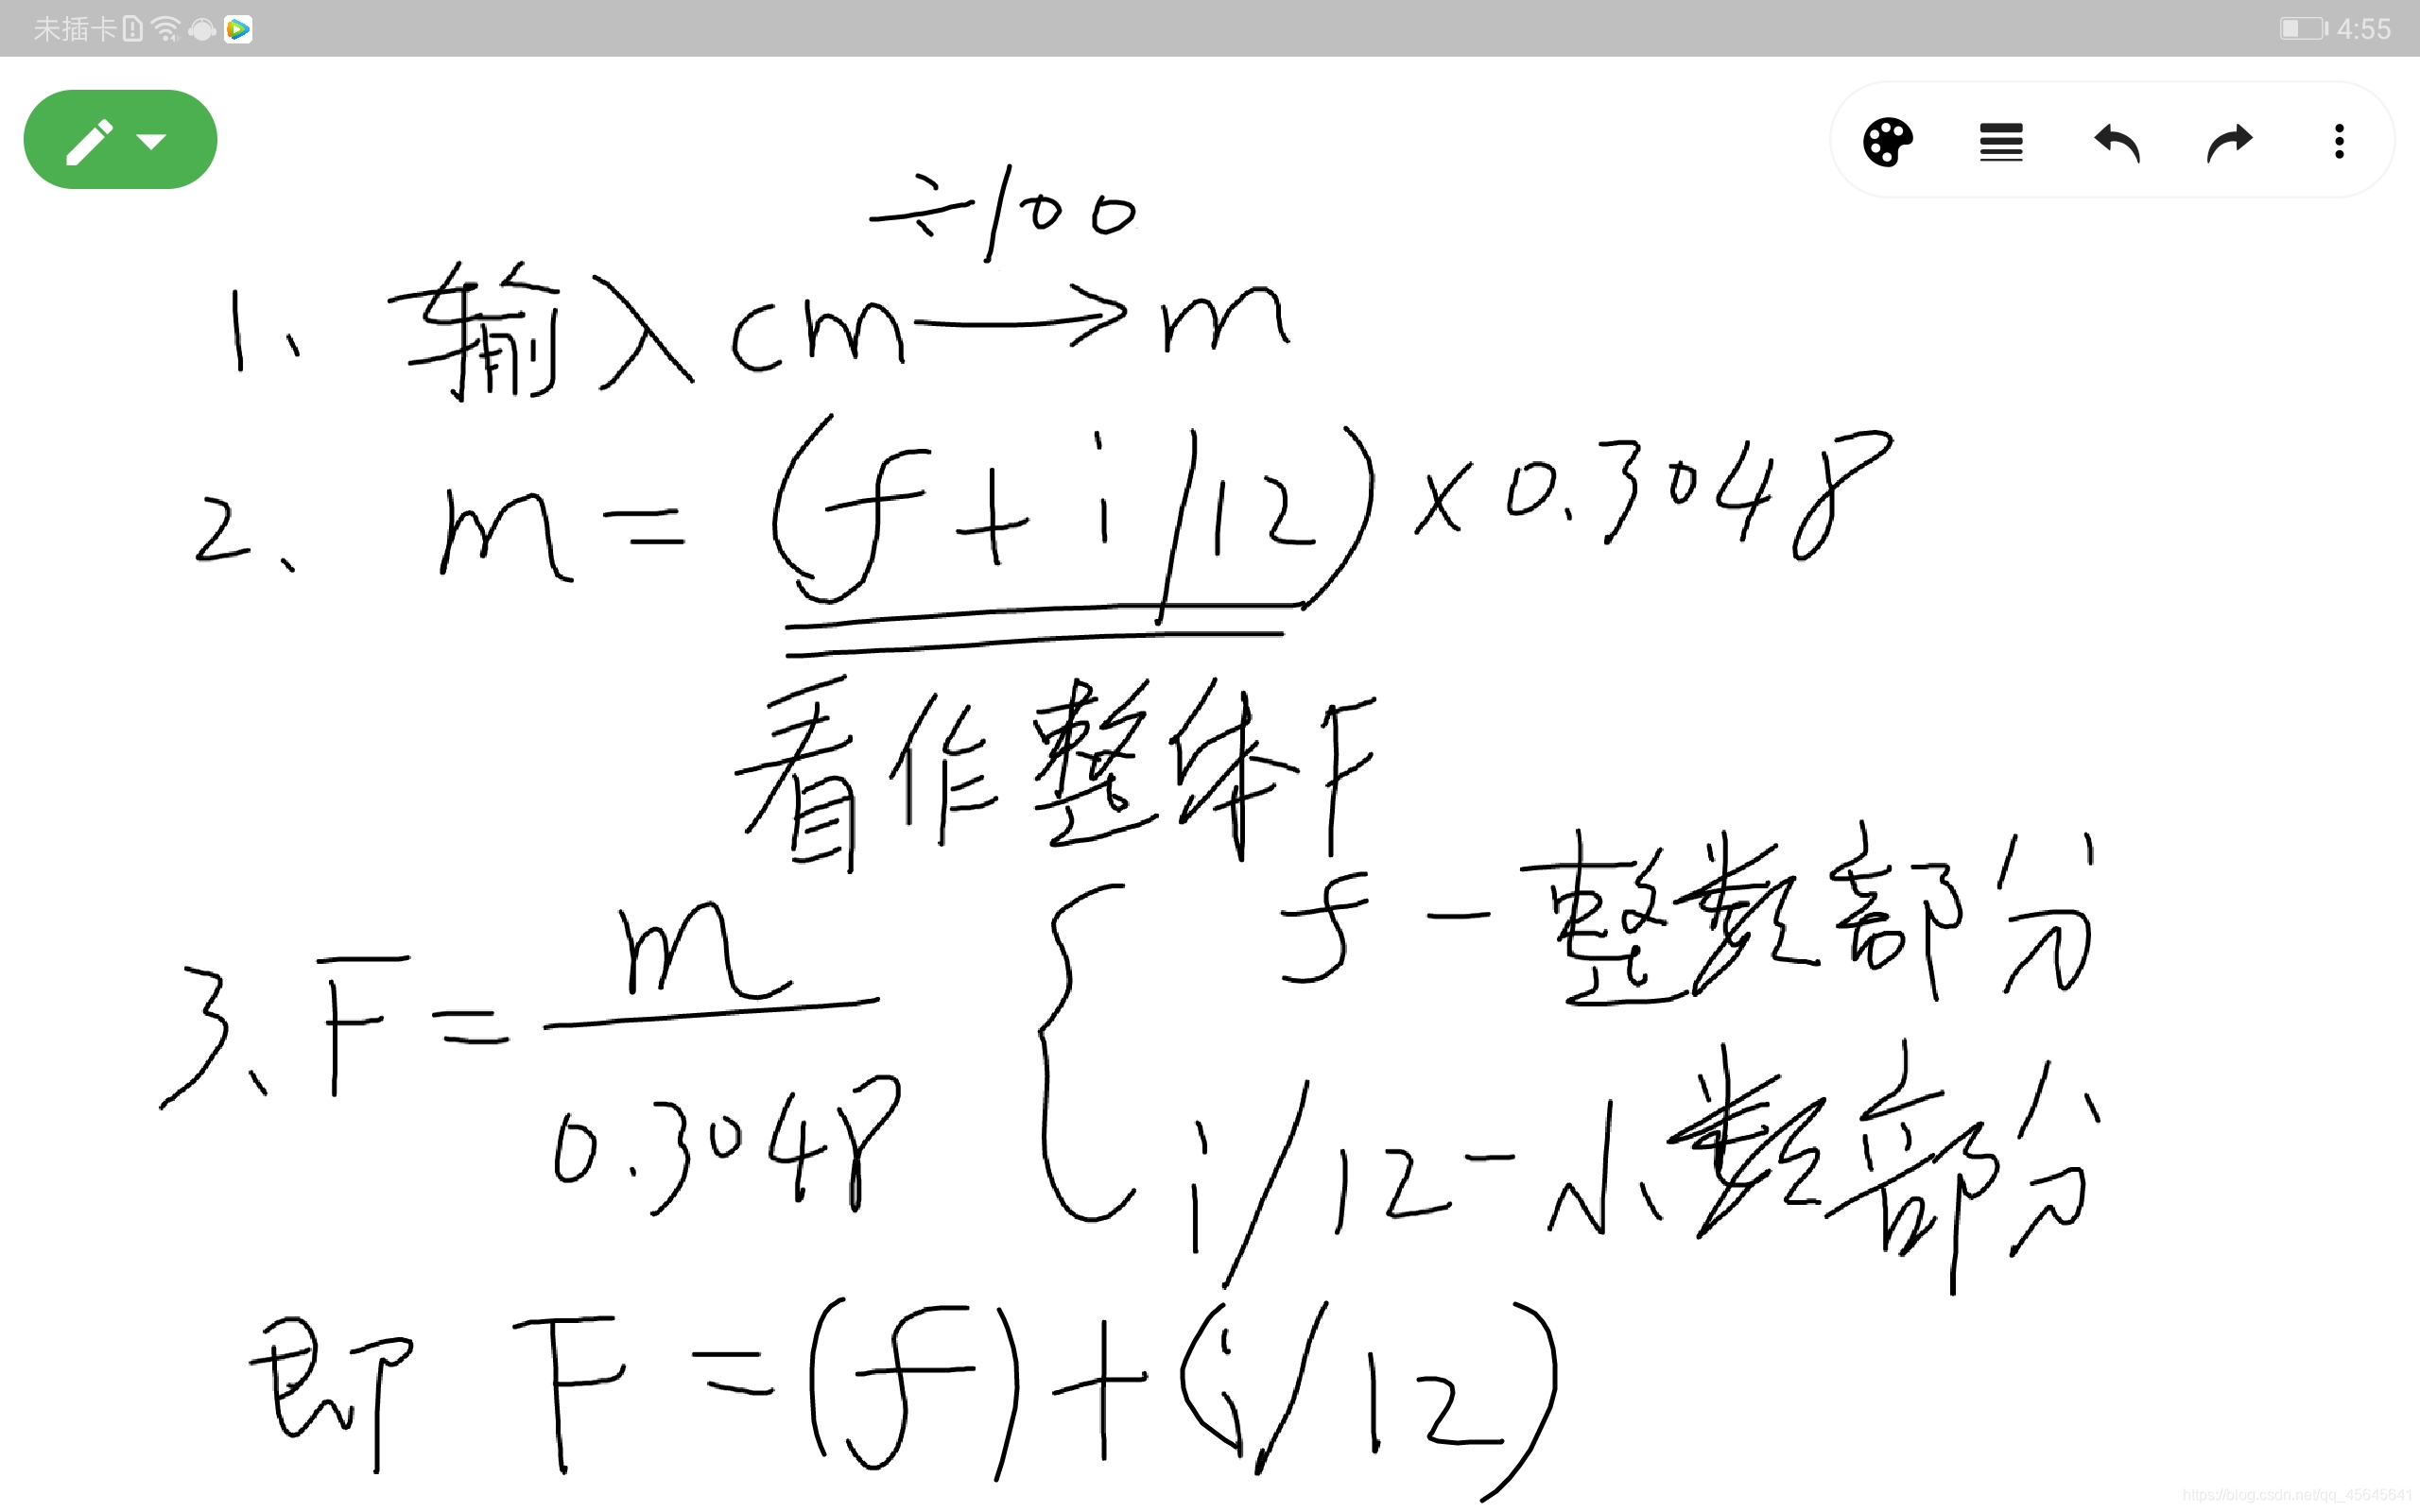 未插卡 4:55
÷100
1、输入cm→m
2、m=(f+i/12)×0.3048
看作整体F
3、F=m/0.3048 { f-整数部分
i/12-小数部分
即 F=(f)+(i/12)
https://blog.csdn.net/qq_45645641